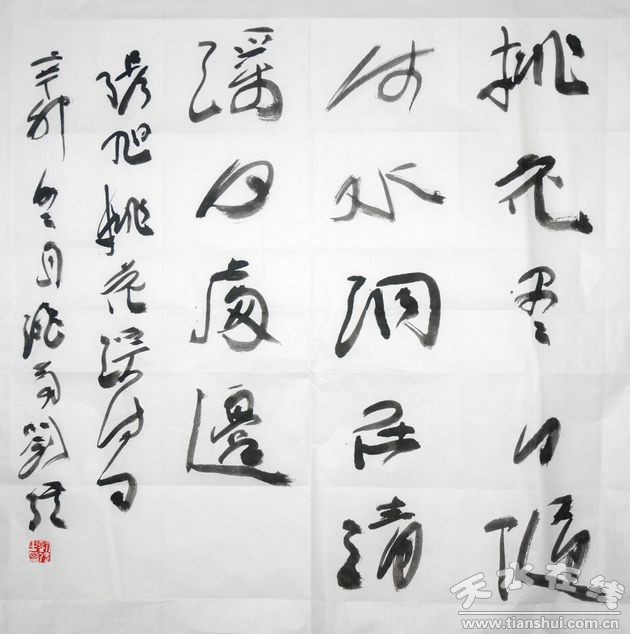 桃花盡日隨
流水洞在清
溪何處邊
張旭桃花溪詩句
辛卯冬月劉
天水在线
www.tianshui.com.cn